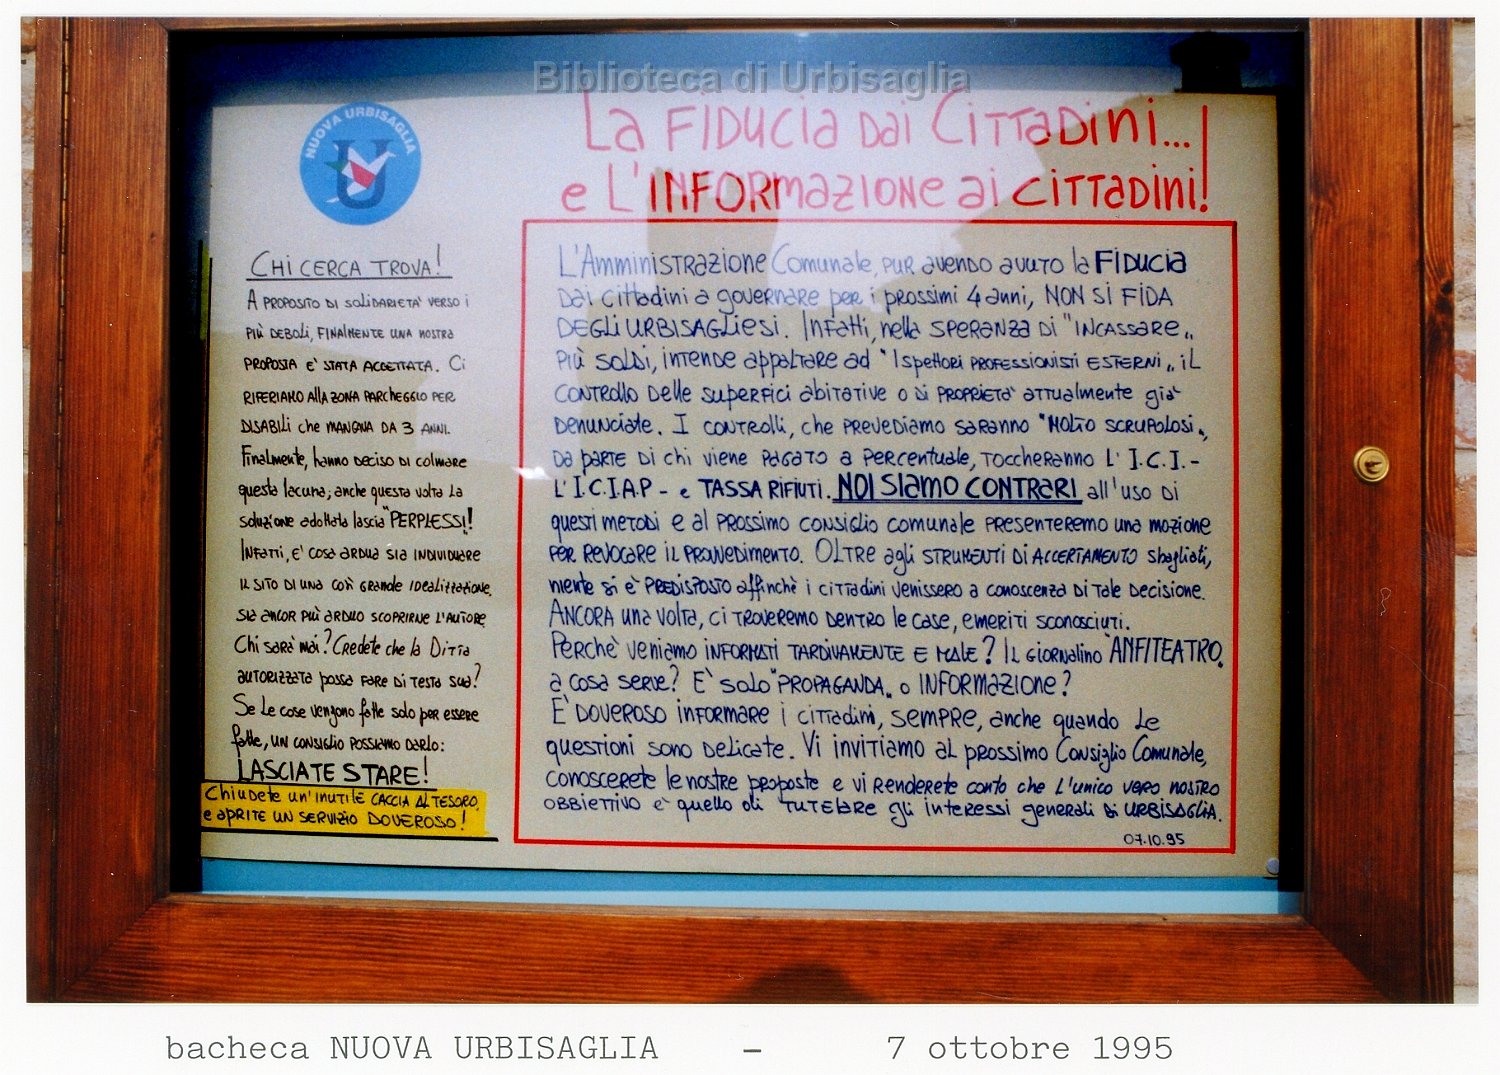 Biblioteca di Urbisaglia
NUOVA URBISAGLIA
U
La FIDUCIA DAI CITTADINI...
e L'INFORMAZIONE ai CITTADINI!
CHI CERCA TROVA!
A PROPOSITO DI SOLIDARIETA' VERSO I
PIÙ DEBOLI, FINALMENTE UNA NOSTRA
PROPOSTA E' STATA ACCETTATA. Ci
RIFERIAMO ALLA ZONA PARCHEGGIO PER
DISABILI che MANCAVA DA 3 ANNI.
Finalmente, hanno deciso di colmare
questa lacuna; anche questa volta la
soluzione adottata lascia "PERPLESSI!
INFATTI, E' COSA ARDUA SIA INDIVIDUARE
IL SITO DI UNA COSÌ GRANDE IDEALIZZAZIONE,
SIA ANCOR PIÙ ARDUO SCOPRIRNE L'AUTORE.
Chi sarà mai? Credete che la Ditta
autorizzata possa fare di testa sua?
Se le cose vengono fatte solo per essere
fatte, UN CONSIGLIO POSSIAMO DARLO:
LASCIATE STARE!
Chiudete un'inutile CACCIA AL TESORO,
e aprite UN SERVIZIO DOVEROSO!
L'Amministrazione Comunale, pur avendo avuto la FIDUCIA
dai cittadini a governare per i prossimi 4 anni, NON SI FIDA
DEGLI URBISAGLIESI. Infatti, nella SPERANZA DI "INCASSARE„
PIÙ SOLDI, intende appaltare ad "Ispettori PROFESSIONISTI ESTERNI„ iL
CONTROLLO delle superfici abitative o di PROPRIETA' attualmente già
denunciate. I CONTROLLI, che prevediamo saranno "MOLTO SCRUPOLOSI„,
DA PARTE DI chi viene PAGATO a percentuale, toccheranno L' I.C.I.-
L'I.C.I.A.P - e TASSA RIFIUTI. NOI SIAMO CONTRARI all'uso DI
questi metodi e al prossimo consiglio comunale presenteremo una mozione
PER REVOCARE IL PROVVEDIMENTO. OLTRE agli STRUMENTI DI ACCERTAMENTO sbagliati,
niente si è PREDISPOSTO affinchè i cittadini venissero a conoscenza di tale decisione.
ANCORA una volta, ci troveremo dentro le case, emeriti sconosciuti.
Perchè veniamo INFORMATI TARDIVAMENTE E MALE? IL GIORNALINO "ANFITEATRO„
a cosa serve? E' solo "PROPAGANDA„ o INFORMAZIONE?
E' DOVEROSO INFORMARE i cittadini, SEMPRE, anche quando le
questioni sono delicate. Vi invitiamo al prossimo Consiglio Comunale,
conoscerete le nostre proposte e vi renderete conto che L'unico vero nostro
OBBIETTIVO e' quello di TUTELARE gli interessi generali di URBISAGLIA.
07.10.95
bacheca NUOVA URBISAGLIA - 7 ottobre 1995